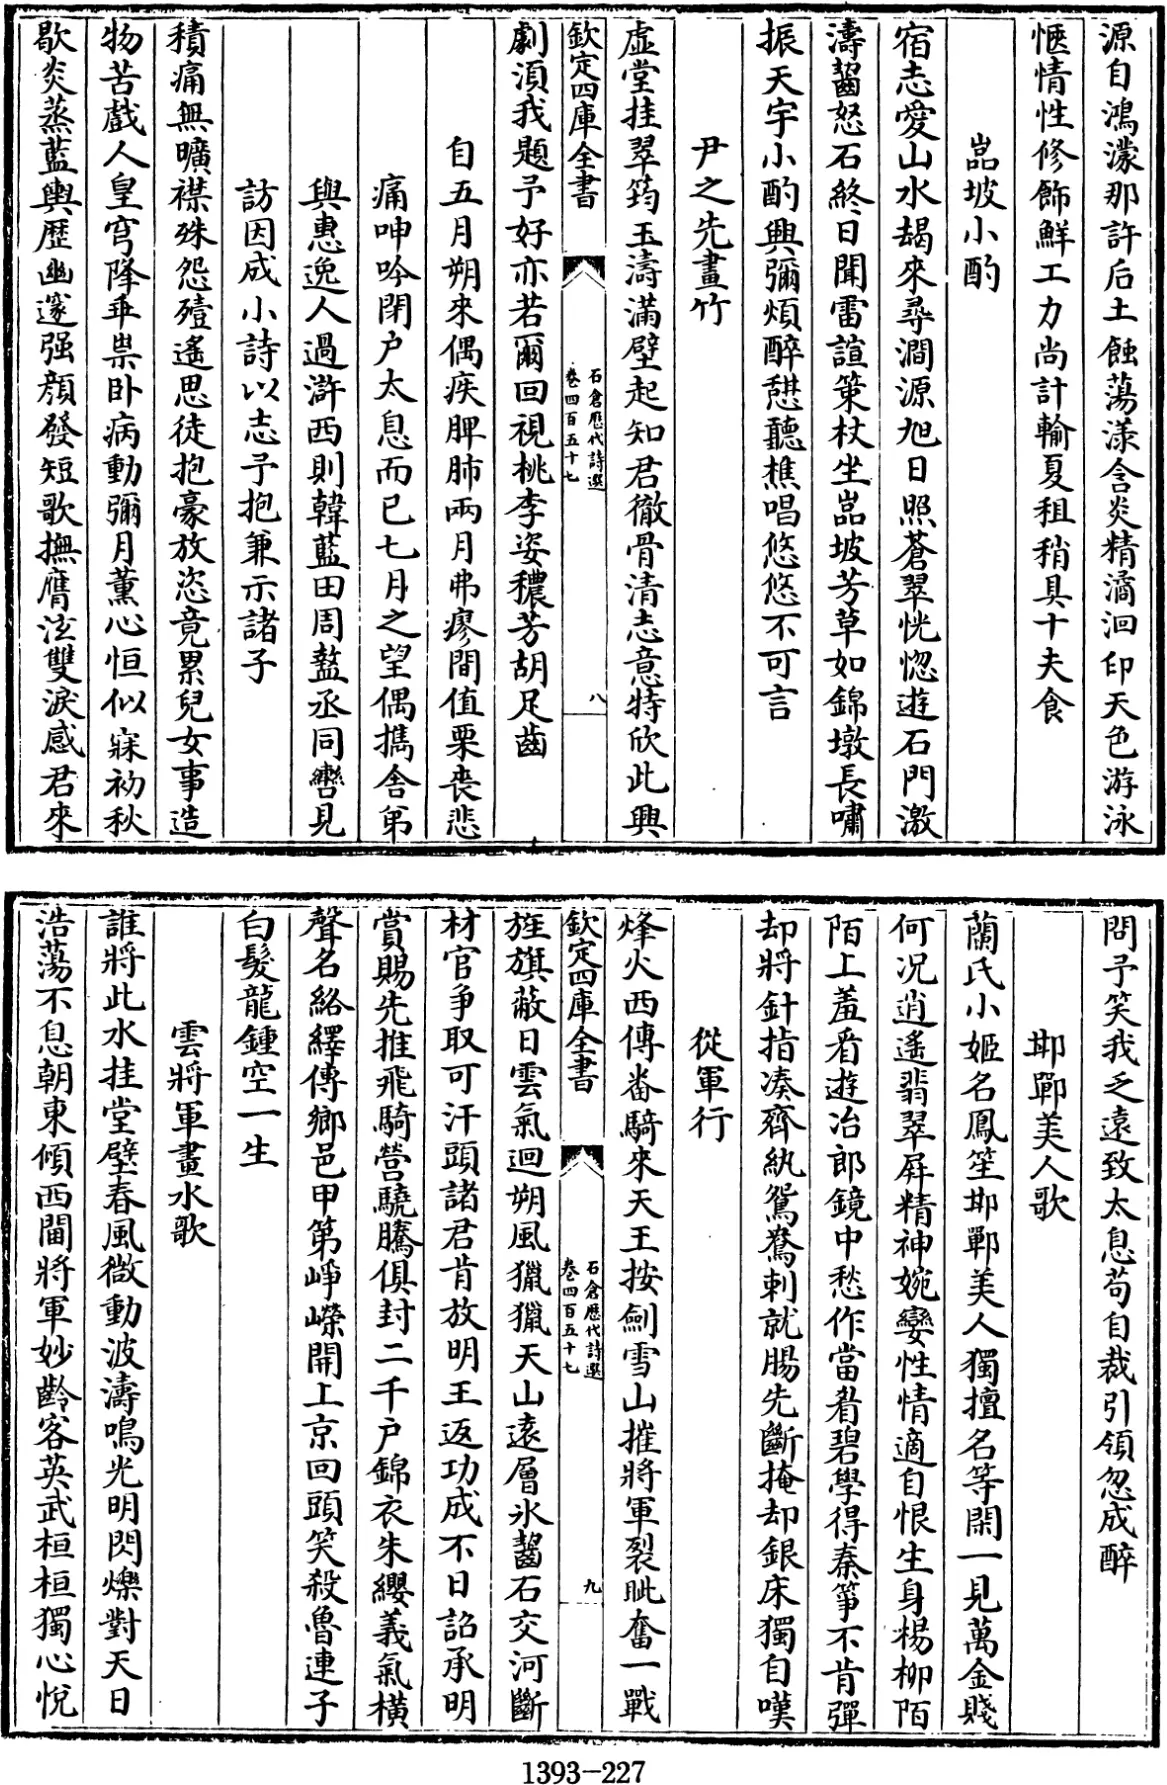 源自鴻濛那許后土蝕蕩漾含炎精潏洄印天色游泳
愜情性修飾鮮工力尚計輸夏租稍具十夫食
嵓坡小酌
宿志愛山水朅來尋澗源旭日照蒼翠恍惚遊石門激
濤齧怒石終日聞雷諠策杖坐嵓坡芳草如錦墩長嘯
振天宇小酌興彌煩醉憇聽樵唱悠悠不可言
尹之先畫竹
虚堂挂翠筠玉濤滿壁起知君徹骨清志意特欣此興
欽定四庫全書
石倉歷代詩選
卷四百五十七
八
劇須我題予好亦若爾回視桃李姿穠芳胡足齒
自五月朔來偶疾脾肺兩月弗瘳間值栗喪悲
痛呻吟閉户太息而已七月之望偶攜舍弟
與惠逸人過滸西則韓藍田周盩丞同轡見
訪因成小詩以志予抱兼示諸子
積痛無曠襟殊怨殪遙思徒抱豪放恣竟累兒女事造
物苦戲人皇穹降垂祟卧病動彌月薰心恒似寐初秋
歇炎蒸藍輿歷幽邃强顔發短歌撫膺泫雙淚感君來
問予笑我乏遠致太息苟自裁引領忽成醉
邯鄲美人歌
蘭氏小姬名鳳笙邯鄲美人獨擅名等閑一見萬金賤
何况逍遙翡翠屏精神婉孌性情適自恨生身楊柳陌
陌上羞看遊冶郎鏡中愁作當㸔碧學得秦箏不肯彈
却將針指湊齊紈鴛鴦刺就腸先斷掩却銀床獨自嘆
從軍行
烽火西傳畨騎來天王按劍雪山摧將軍裂眦奮一戰
欽定四庫全書
石倉歷代詩選
卷四百五十七
九
旌旗蔽日雲氣迴朔風獵獵天山遠層氷齧石交河斷
材官争取可汗頭諸君肯放明王返功成不日詔承明
賞賜先推飛騎營驍騰俱封二千户錦衣朱纓義氣橫
聲名絡繹傳鄉邑甲第崢嶸開上京回頭笑殺魯連子
白髮龍鍾空一生
雲將軍畫水歌
誰將此水挂堂壁春風微動波濤鳴光明閃爍對天日
浩蕩不息朝東傾西閫將軍妙齡客英武桓桓獨心悅
1393-227